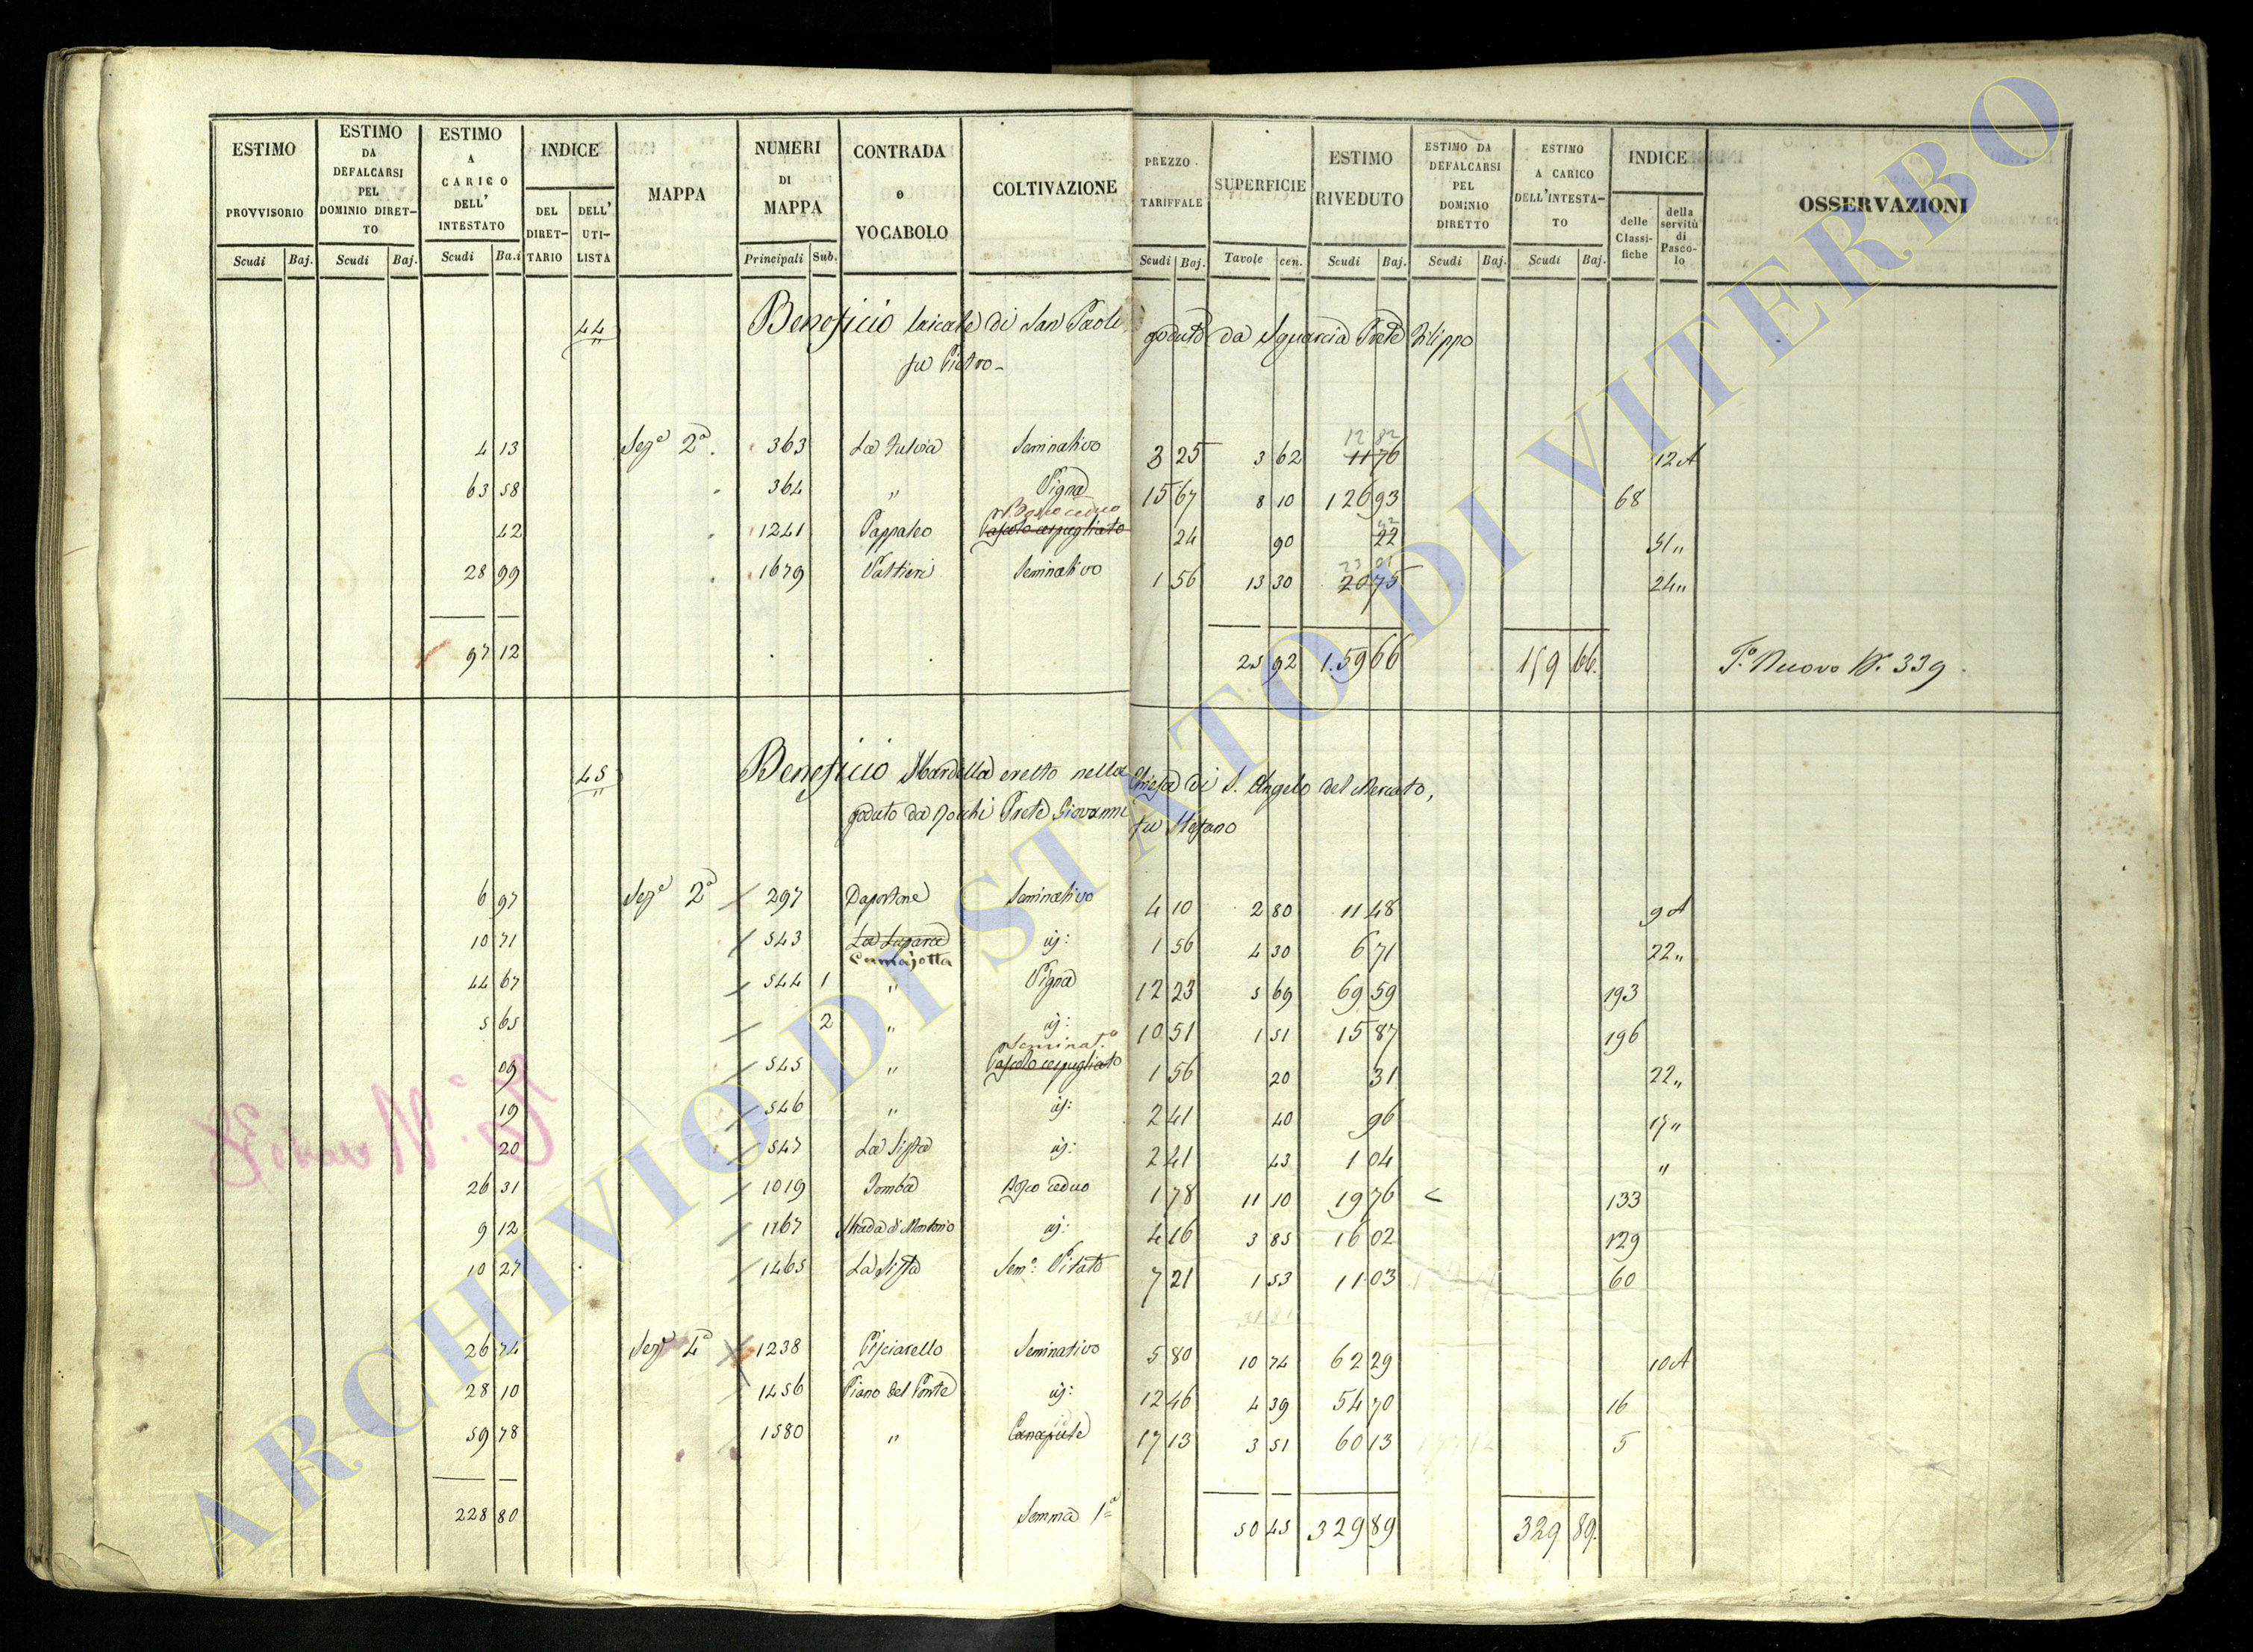 ESTIMO PROVVISORIO
ESTIMO DA DEFALCARSI PEL DOMINIO DIRET-TO
ESTIMO A CARICO DELL' INTESTATO
INDICE
DEL DIRET-TARIO
DELL' UTI-LISTA
MAPPA
NUMERI DI MAPPA
CONTRADA o VOCABOLO
COLTIVAZIONE
PREZZO TARIFFALE
SUPERFICIE
ESTIMO RIVEDUTO
ESTIMO DA DEFALCARSI PEL DOMINIO DIRETTO
ESTIMO A CARICO DELL'INTESTA-TO
INDICE
delle Classi-fiche
della servitù di Pasco-lo
OSSERVAZIONI
Scudi Baj. Scudi Baj. Scudi Ba.i Principali Sub. Scudi Baj. Tavole cen. Scudi Baj. Scudi Baj. Scudi Baj.
44 Beneficio laicale di San Paolo goduto da Sguarcia Prete Filippo
fu Pietro
4 13 Seze 2a 363 Seminativo 3 25 3 62 12 82 11 76 12 A
63 58 364 " Vigna 15 67 8 10 126 93 68
42 1241 Pappaleo Bosco ceduo Pascolo cespugliato 24 90 22 51 "
28 99 1679 Seminativo 1 56 13 30 20 75 24 "
97 12 25 92 159 66 159 66 Po Nuovo N. 339
45 Beneficio Sbardella eretto nella Chiesa di S. Angelo del Mercato,
goduto da Prete Giovanni fu Stefano
6 97 Seze 2a 297 Daportone Seminativo 4 10 2 80 11 48 9 A
10 71 543 Camajotta id: 1 56 4 30 6 71 22 "
44 67 544 1 " Vigna 12 23 5 69 69 59 193
5 65 2 " id: 10 51 1 51 15 87 196
09 545 " Seminato Pascolo cespugliato 1 56 20 31 22 "
19 546 " id: 2 41 40 96 17 "
20 547 id: 2 41 43 1 04 "
26 31 1019 Tomba Bosco ceduo 1 78 11 10 19 76 133
9 12 1167 Strada di id: 4 16 3 85 16 02 129
10 27 1465 Sem: Vitato 7 21 1 53 11 03 60
26 74 Seze 4a 1238 Pisciarello Seminativo 5 80 10 74 62 29 10 A
28 10 1456 Piano del Ponte id: 12 46 4 39 54 70 16
59 78 1580 " Canapule 17 13 3 51 60 13 5
228 80 Somma 1a 50 45 329 89 329 89
ARCHIVIO DI STATO DI VITERBO